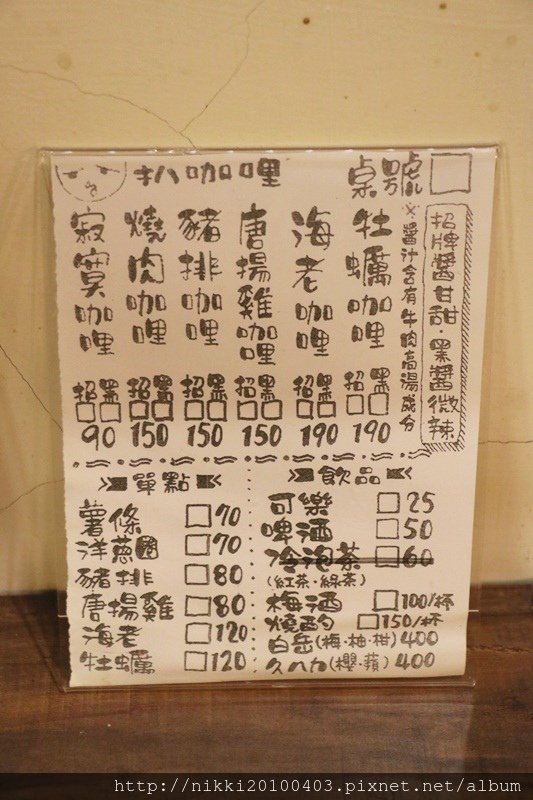 扒咖哩 桌號
招牌醬甘甜．黑醬微辣
※醬汁含有牛肉高湯成分
牡蠣咖哩 招 黑 190
海老咖哩 招 黑 190
唐揚雞咖哩 招 黑 150
豬排咖哩 招 黑 150
燒肉咖哩 招 黑 150
寂寞咖哩 招 黑 90
單點
薯條 70
洋蔥圈 70
豬排 80
唐揚雞 80
海老 120
牡蠣 120
飲品
可樂 25
啤酒 50
冷泡茶 60
(紅茶．綠茶)
梅酒 100/杯
燒酌 150/杯
白岳(梅．柚．柑) 400
久八力(櫻．蘋) 400
http://nikki20100403.pixnet.net/album